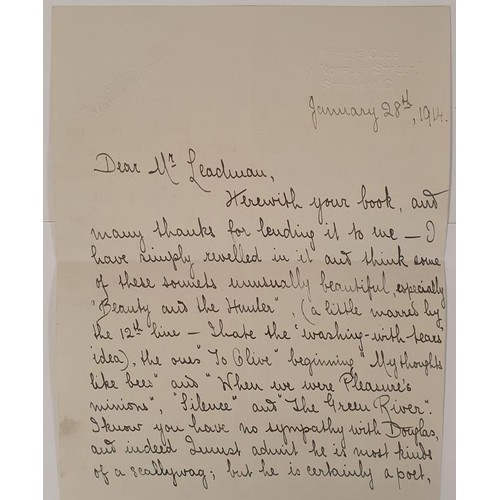 January 28th, 1914.
Dear Mr Leadman,
Herewith your book, and
many thanks for lending it to me — I
have simply revelled in it and think some
of these sonnets unusually beautiful, especially
"Beauty and the Hunter", (a little marred by
the 12th line — I hate the "washing-with-tears"
idea), the ones "To Olive" beginning "My thoughts
like bees" and "When we were Pleasure's
minions", "Silence" and "The Green River".
I know you have no sympathy with Douglas,
and indeed I must admit he is most kinds
of a scallywag; but he is certainly a poet,